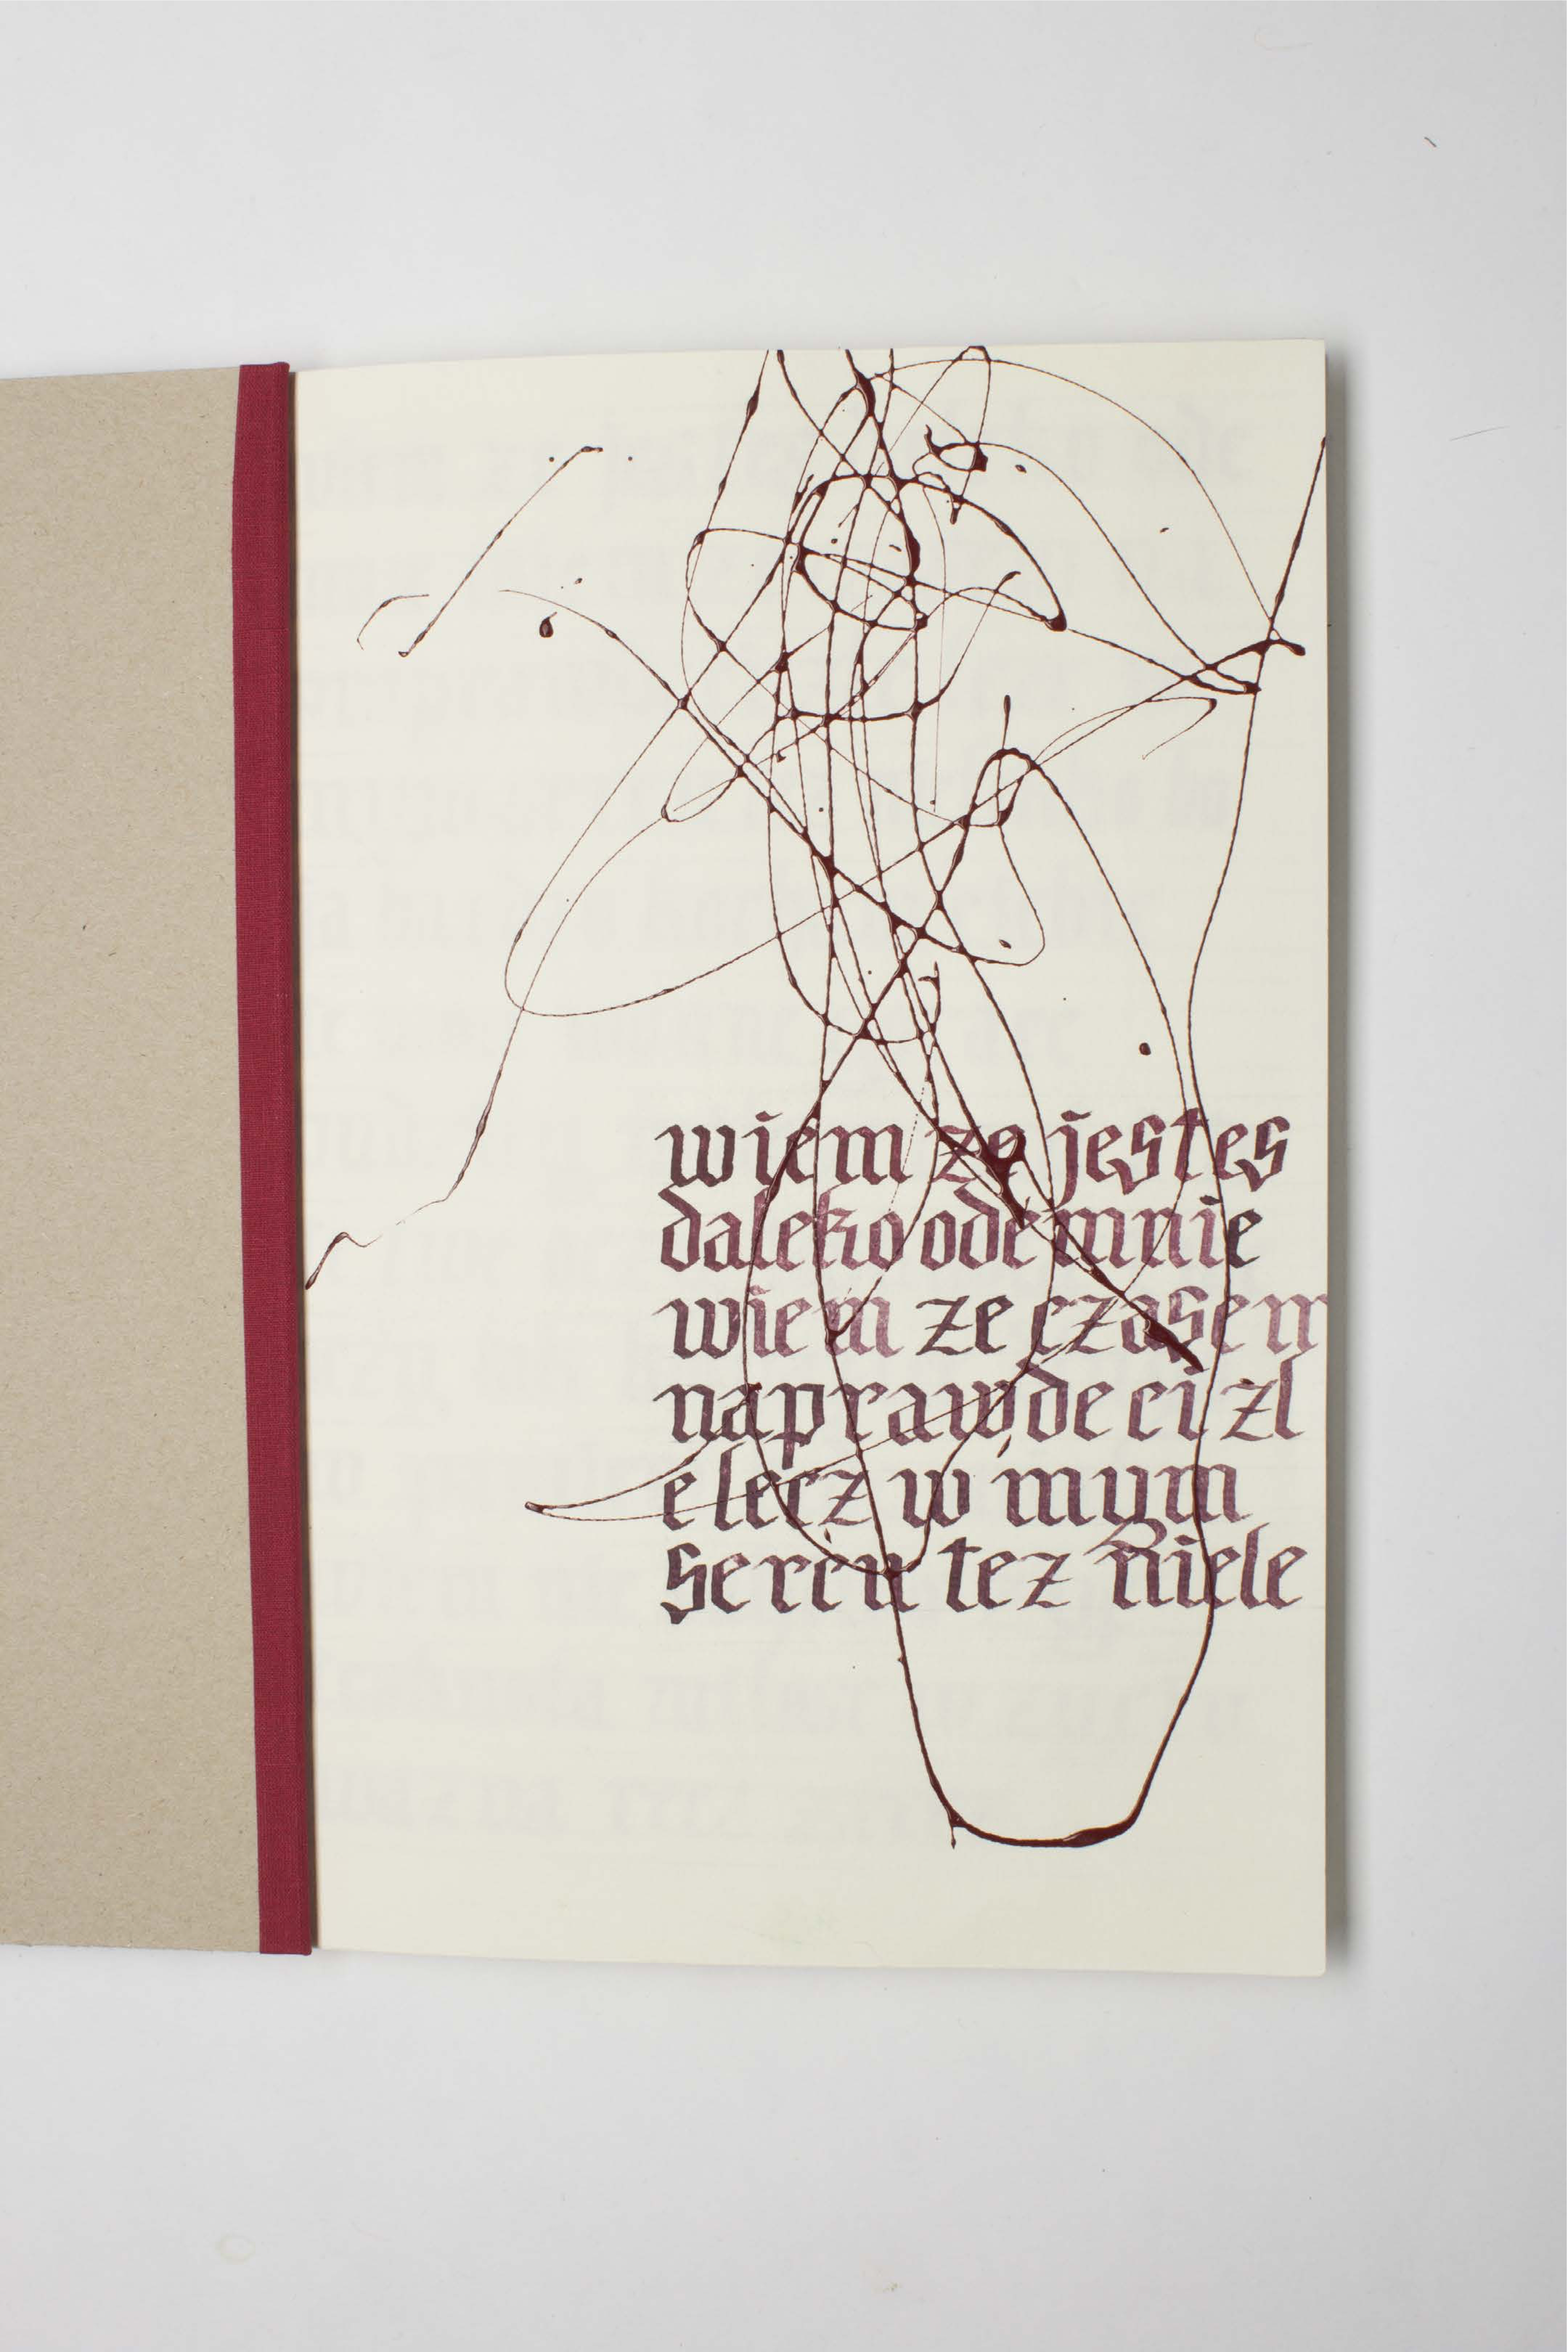 wiem ze jestes
daleko odemnie
wiem ze czasem
naprawde ci zl
e lecz w mym
sercu tez niele